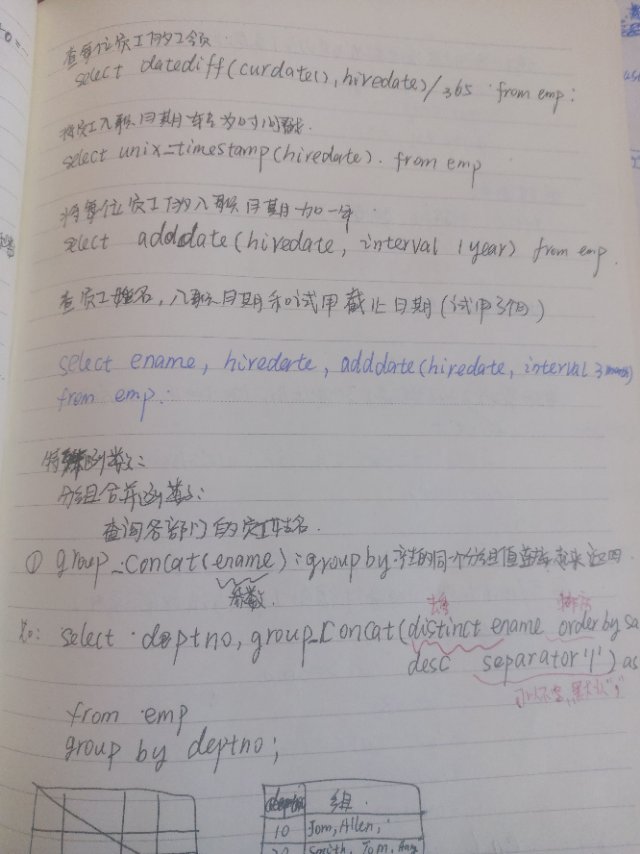 查每位员工的工龄.
select datediff(curdate(), hiredate)/365 from emp;
将员工入职日期转为时间戳.
select unix_timestamp(hiredate). from emp
将每位员工的入职日期加一年.
select adddate(hiredate, interval 1 year) from emp.
查员工姓名,入职日期和试用截止日期(试用3个月)
select ename, hiredate, adddate(hiredate, interval 3 month)
from emp;
特殊函数:
分组合并函数:
查询各部门的员工姓名.
① group_concat(ename): group by 的同一个分组值
参数.
去重 排序
如: select deptno, group_concat(distinct ename order by sa
desc separator '|') as
可以不写,默认","
from emp
group by deptno;
deptno 组
10 Tom, Allen,
20 Smith, Tom,